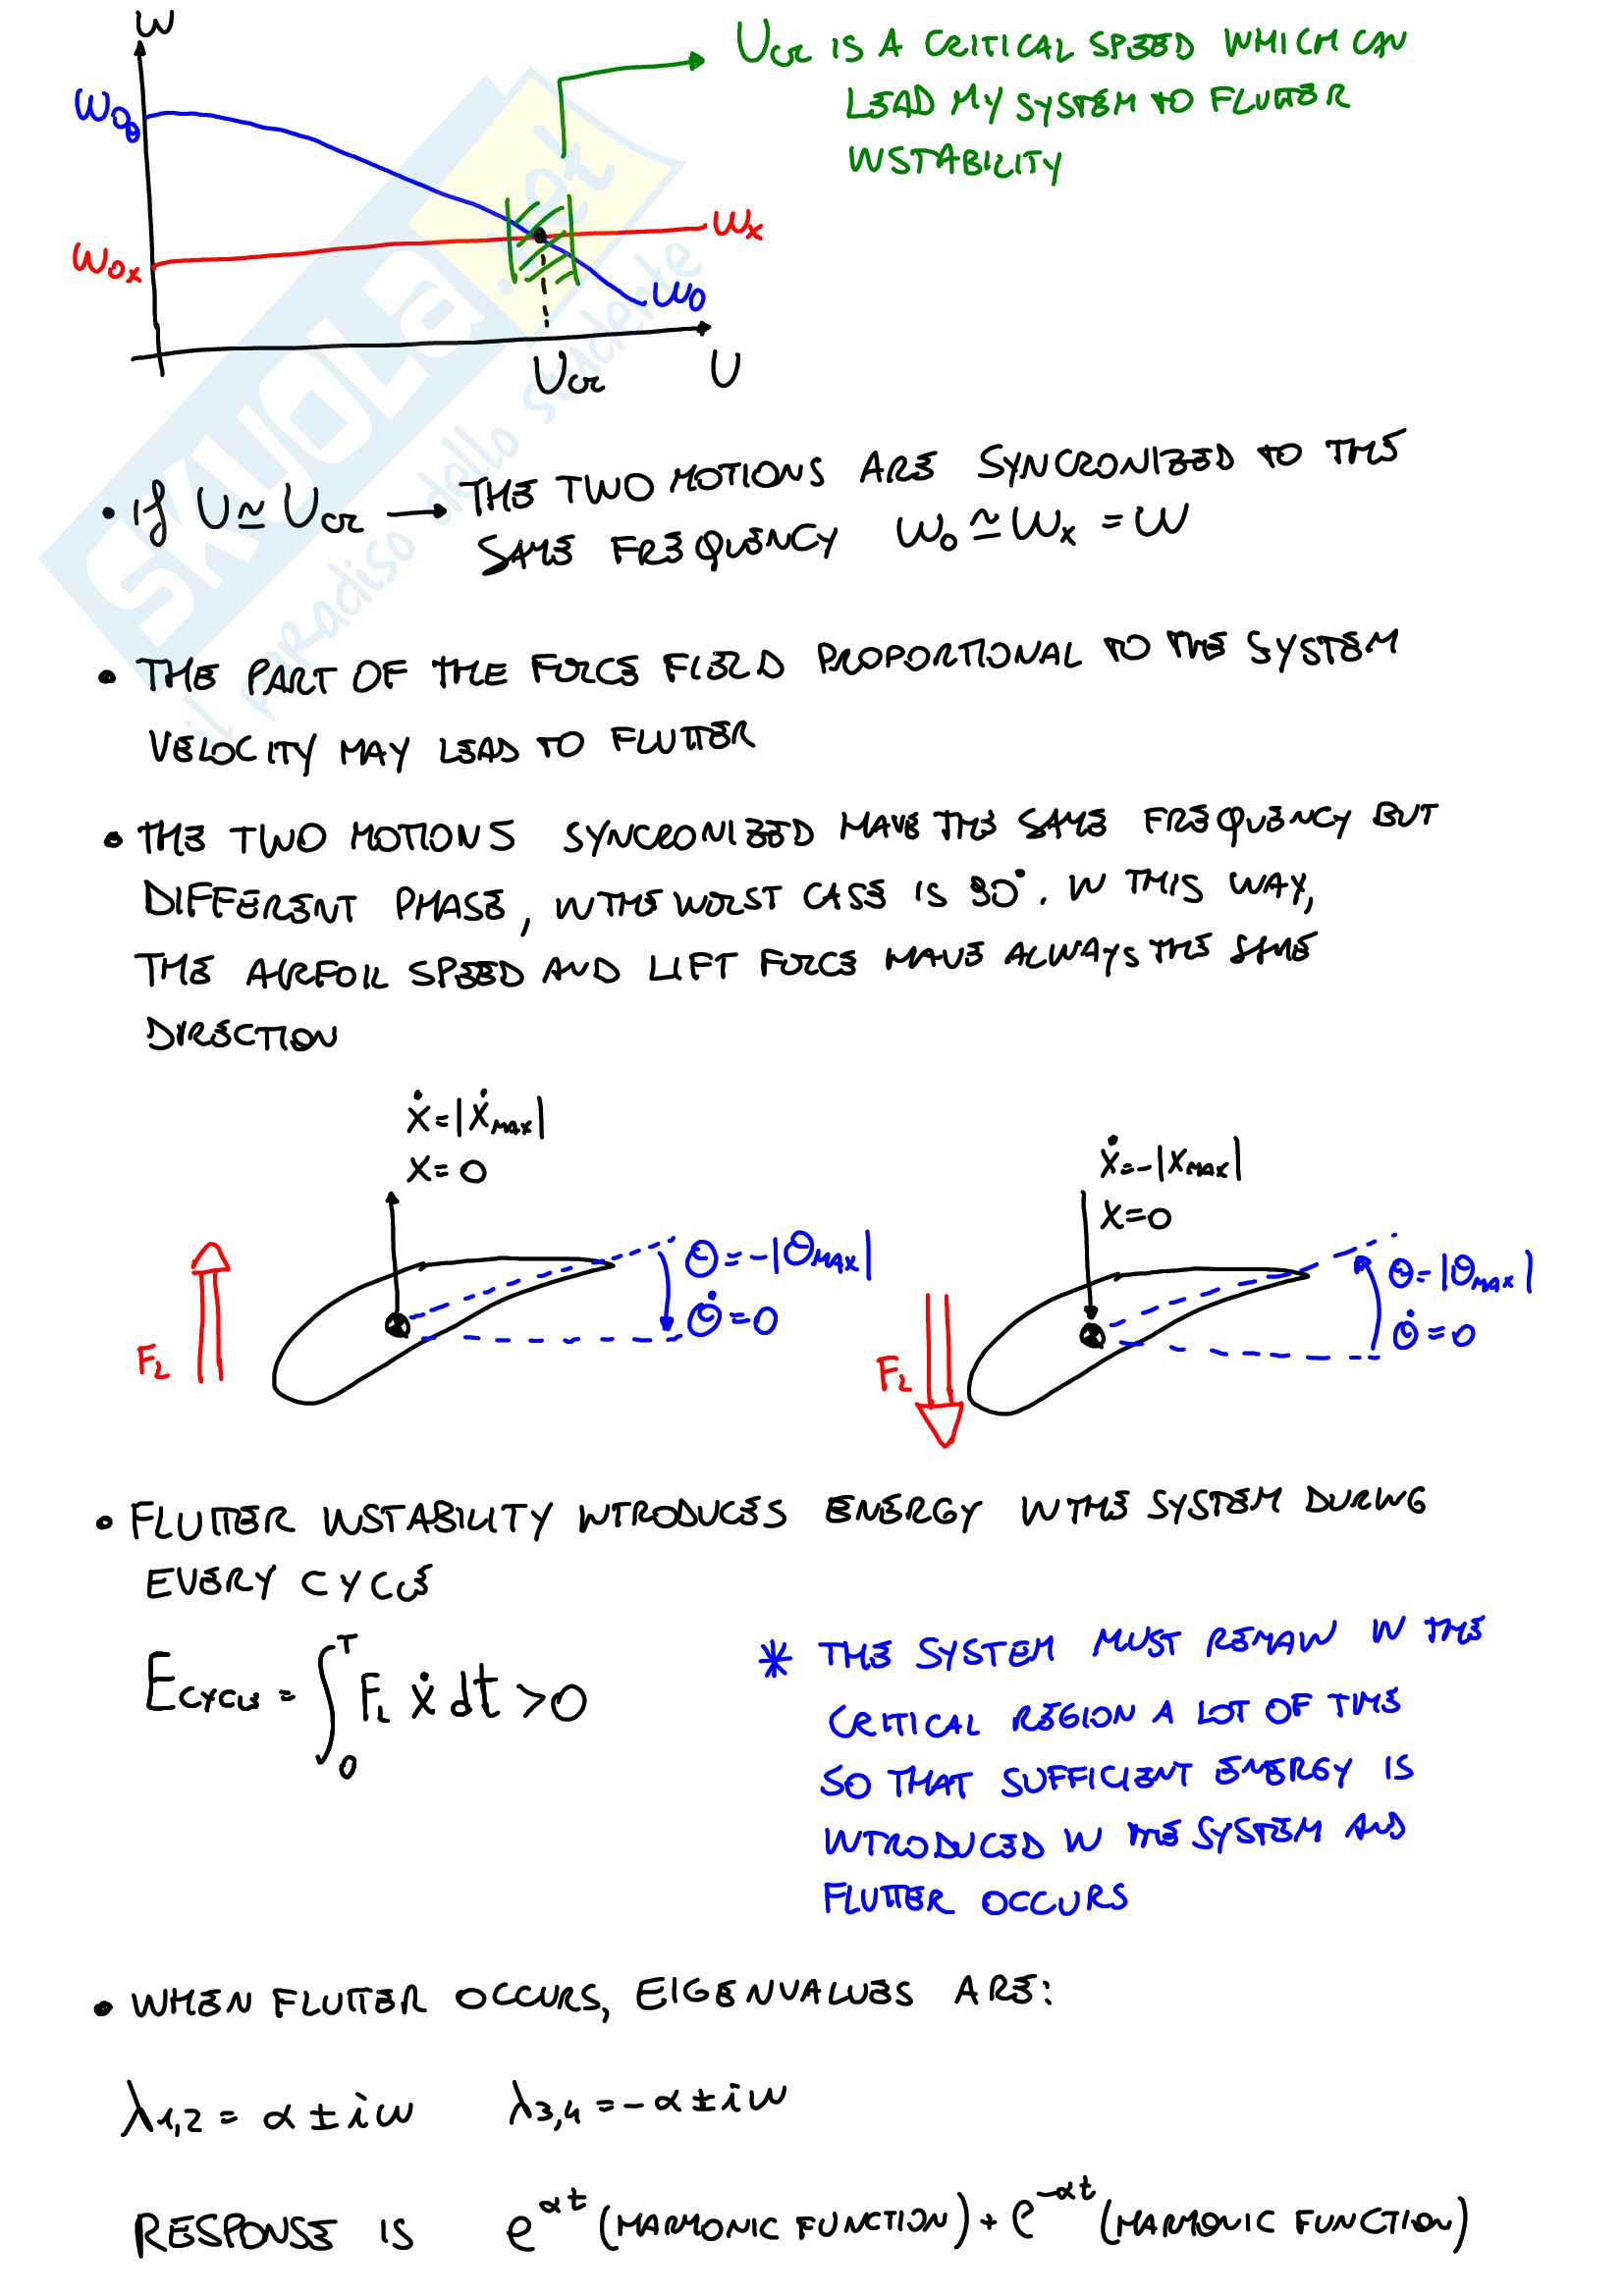 ω
ω₀θ
ω₀ₓ
ωₓ
ωθ
Ucr
U
Ucr IS A CRITICAL SPEED WHICH CAN
LEAD MY SYSTEM TO FLUTTER
INSTABILITY
SKUOLA.net
il paradiso dello studente
• if U ≃ Ucr → THE TWO MOTIONS ARE SYNCRONIZED TO THE
SAME FREQUENCY ωθ ≃ ωₓ = ω
• THE PART OF THE FORCE FIELD PROPORTIONAL TO THE SYSTEM
VELOCITY MAY LEAD TO FLUTTER
• THE TWO MOTIONS SYNCRONIZED HAVE THE SAME FREQUENCY BUT
DIFFERENT PHASE, IN THE WORST CASE IS 90°. IN THIS WAY,
THE AIRFOIL SPEED AND LIFT FORCE HAVE ALWAYS THE SAME
DIRECTION
ẋ=|ẋMAX|
x=0
FL
θ=-|θMAX|
θ̇=0
ẋ=-|xMAX|
x=0
FL
θ=|θMAX|
θ̇=0
• FLUTTER INSTABILITY INTRODUCES ENERGY IN THE SYSTEM DURING
EVERY CYCLE
ECYCLE = ∫₀ᵀ FL ẋ dt >0
* THE SYSTEM MUST REMAIN IN THE
CRITICAL REGION A LOT OF TIME
SO THAT SUFFICIENT ENERGY IS
INTRODUCED IN THE SYSTEM AND
FLUTTER OCCURS
• WHEN FLUTTER OCCURS, EIGENVALUES ARE:
λ1,2 = α ± iω λ3,4 = -α ± iω
RESPONSE IS e^αt (HARMONIC FUNCTION) + e^-αt (HARMONIC FUNCTION)